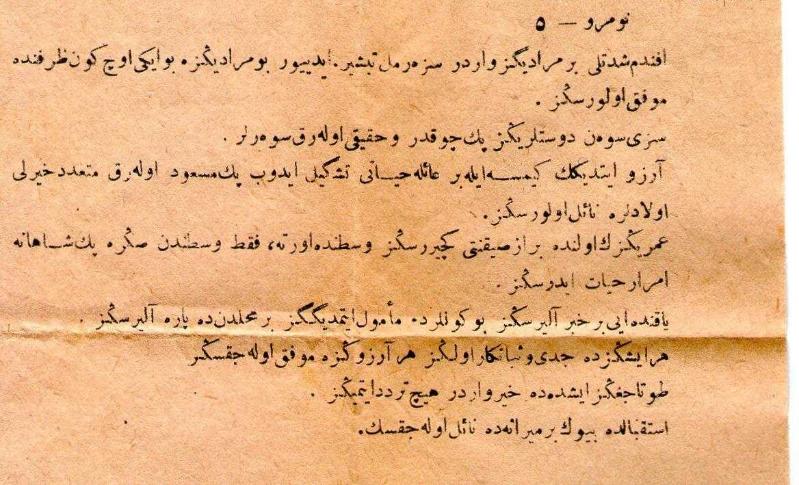 نومرو — ٥
افندم شدتلی بر مرادیگز واردر سزه رمل تبشیر. ایدییور بومرادیڭزه بو ایکی اوچ کون ظرفنده
موفق اولورسڭز .
سزی سوەن دوستلریڭز پك چوقدر وحقیقی اولەرق سوەرلر .
آرزو ایتدیكك كیمسه ایله بر عائله حیاتی تشكیل ایدوب پك مسعود اولەرق متعدد خیرلی
اولادلره نائل اولورسڭز.
عمریڭزك اولنده براز صیقنتی كچیررسڭز وسطنده اورته، فقط وسطندن صڭره پك شاهانه
امرار حیات ایدرسڭز .
یاقنده ایی بر خبر آلیرسڭز بو كونلرده مأمول ایتمدیگڭز بر محلدن ده پاره آلیرسڭز .
هر ایشڭزده جدی و ثباتكار اولڭز هر آرزوڭزه موفق اوله جقسڭز
طوتاجغڭز ایشده ده خیر واردر هیچ تردد ایتمیڭز .
استقبالده بیوك بر میراثه ده نائل اوله جقسك.